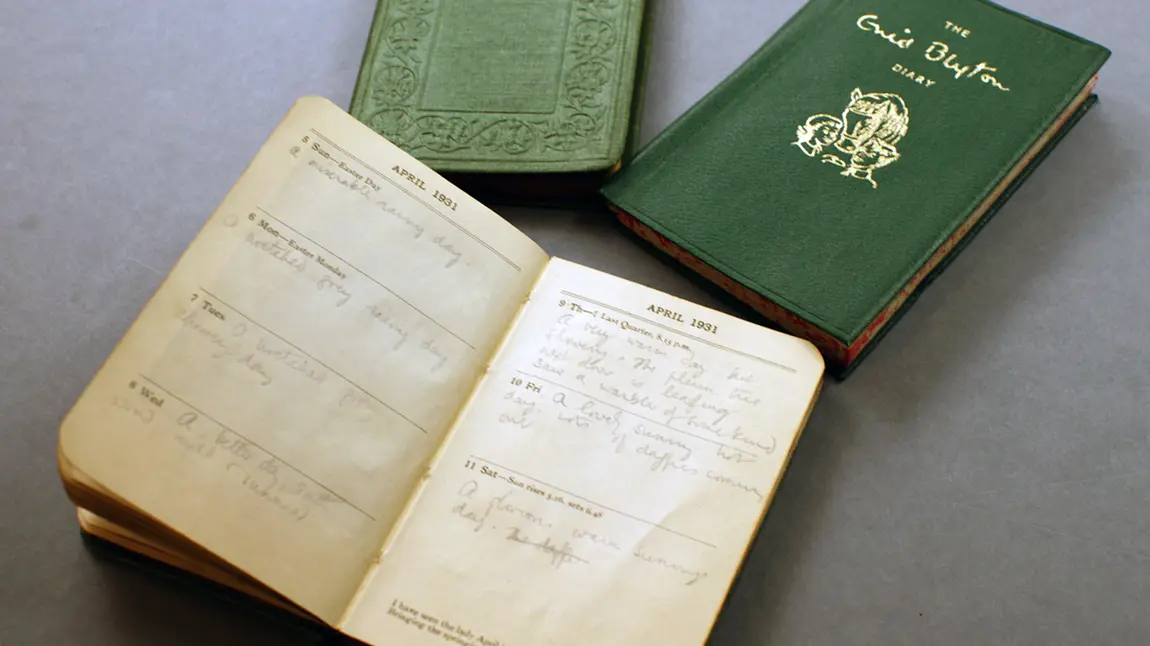 THE
Enid Blyton
DIARY
APRIL 1931
5 Sun—Easter Day
A miserable rainy day.
6 Mon—Easter Monday
A wretched grey rainy day
7 Tues.
A wretched grey
showery day
8 Wed
A better day,
mild
wind
APRIL 1931
9 Th—☾ Last Quarter, 8.15 p.m.
A very warm day but
showery. The plum tree
next door is leafing.
Saw a warble of some kind
10 Fri
A lovely sunny hot
day. Lots of daffies coming
out
11 Sat—Sun rises 5.16, sets 6.46
A glorious warm sunny
day.
I have seen the lady April
Bringing the